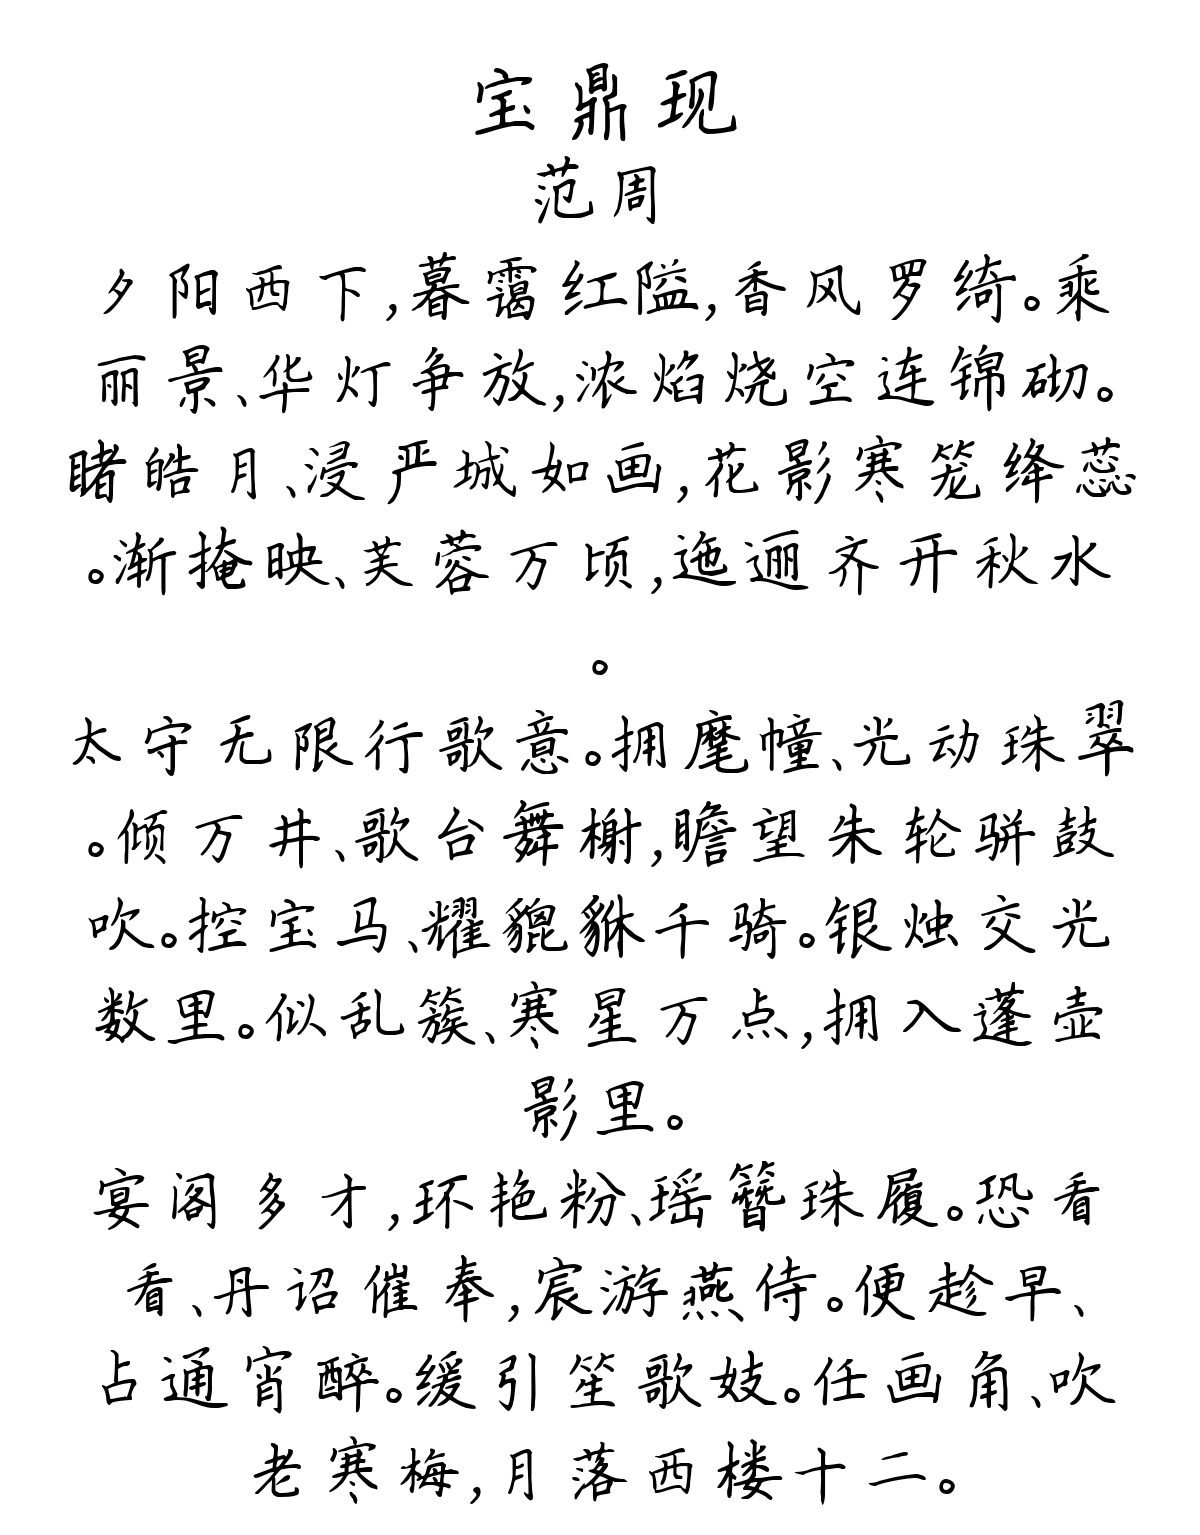 宝鼎现
范周
夕阳西下,暮霭红隘,香风罗绮。乘
丽景、华灯争放,浓焰烧空连锦砌。
睹皓月、浸严城如画,花影寒笼绛蕊
。渐掩映、芙蓉万顷,迤逦齐开秋水
。
太守无限行歌意。拥麾幢、光动珠翠
。倾万井、歌台舞榭,瞻望朱轮骈鼓
吹。控宝马、耀貔貅千骑。银烛交光
数里。似乱簇、寒星万点,拥入蓬壶
影里。
宴阁多才,环艳粉、瑶簪珠履。恐看
看、丹诏催奉,宸游燕侍。便趁早、
占通宵醉。缓引笙歌妓。任画角、吹
老寒梅,月落西楼十二。